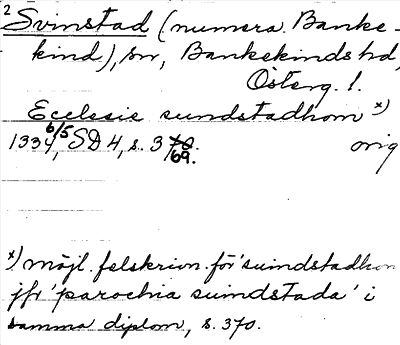 2 Svinstad (numera Banke-
kind), sn, Bankekinds hd,
Österg. l.
Ecclesie sundstadhom x)
1334 6/5, SD 4, s. 370. orig
69.
x) möjl. felskrivn. för 'suindstadhom
jfr 'parochia suindstada' i
samma diplom, s. 370.